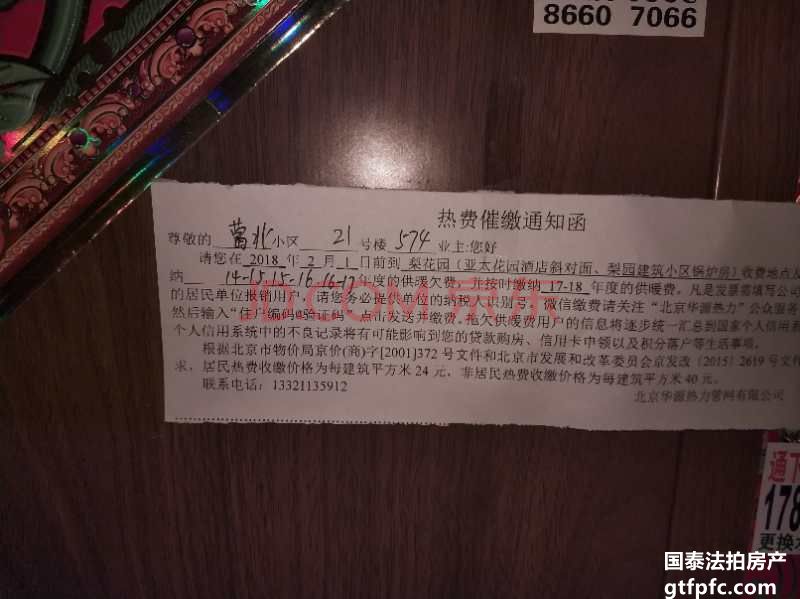 8660 7066
热费催缴通知函
尊敬的 葛北 小区 21 号楼 574 业主:您好
请您在 2018 年 2 月 1 日前到 梨花园（亚太花园酒店斜对面、梨园建筑小区锅炉房）收费地点
纳 14-15.15-16.16-17年度的供暖欠费，并按时缴纳 17-18 年度的供暖费。凡是发票需填写公司
的居民单位报销用户，请您务必提供单位的纳税人识别号。微信缴费请关注“北京华源热力”公众服务
然后输入“住户编码+验证码”点击发送并缴费。拖欠供暖费用户的信息将逐步统一汇总到国家个人信用
个人信用系统中的不良记录将有可能影响到您的贷款购房、信用卡申领以及积分落户等生活事项。
根据北京市物价局京价(商)字[2001]372 号文件和北京市发展和改革委员会京发改〔2015〕2619 号文件
求，居民热费收缴价格为每建筑平方米 24 元，非居民热费收缴价格为每建筑平方米 40 元。
联系电话：13321135912
北京华源热力管网有限公司
JD.COM 京东
通下
178
更换
国泰法拍房产
gtfpfc.com